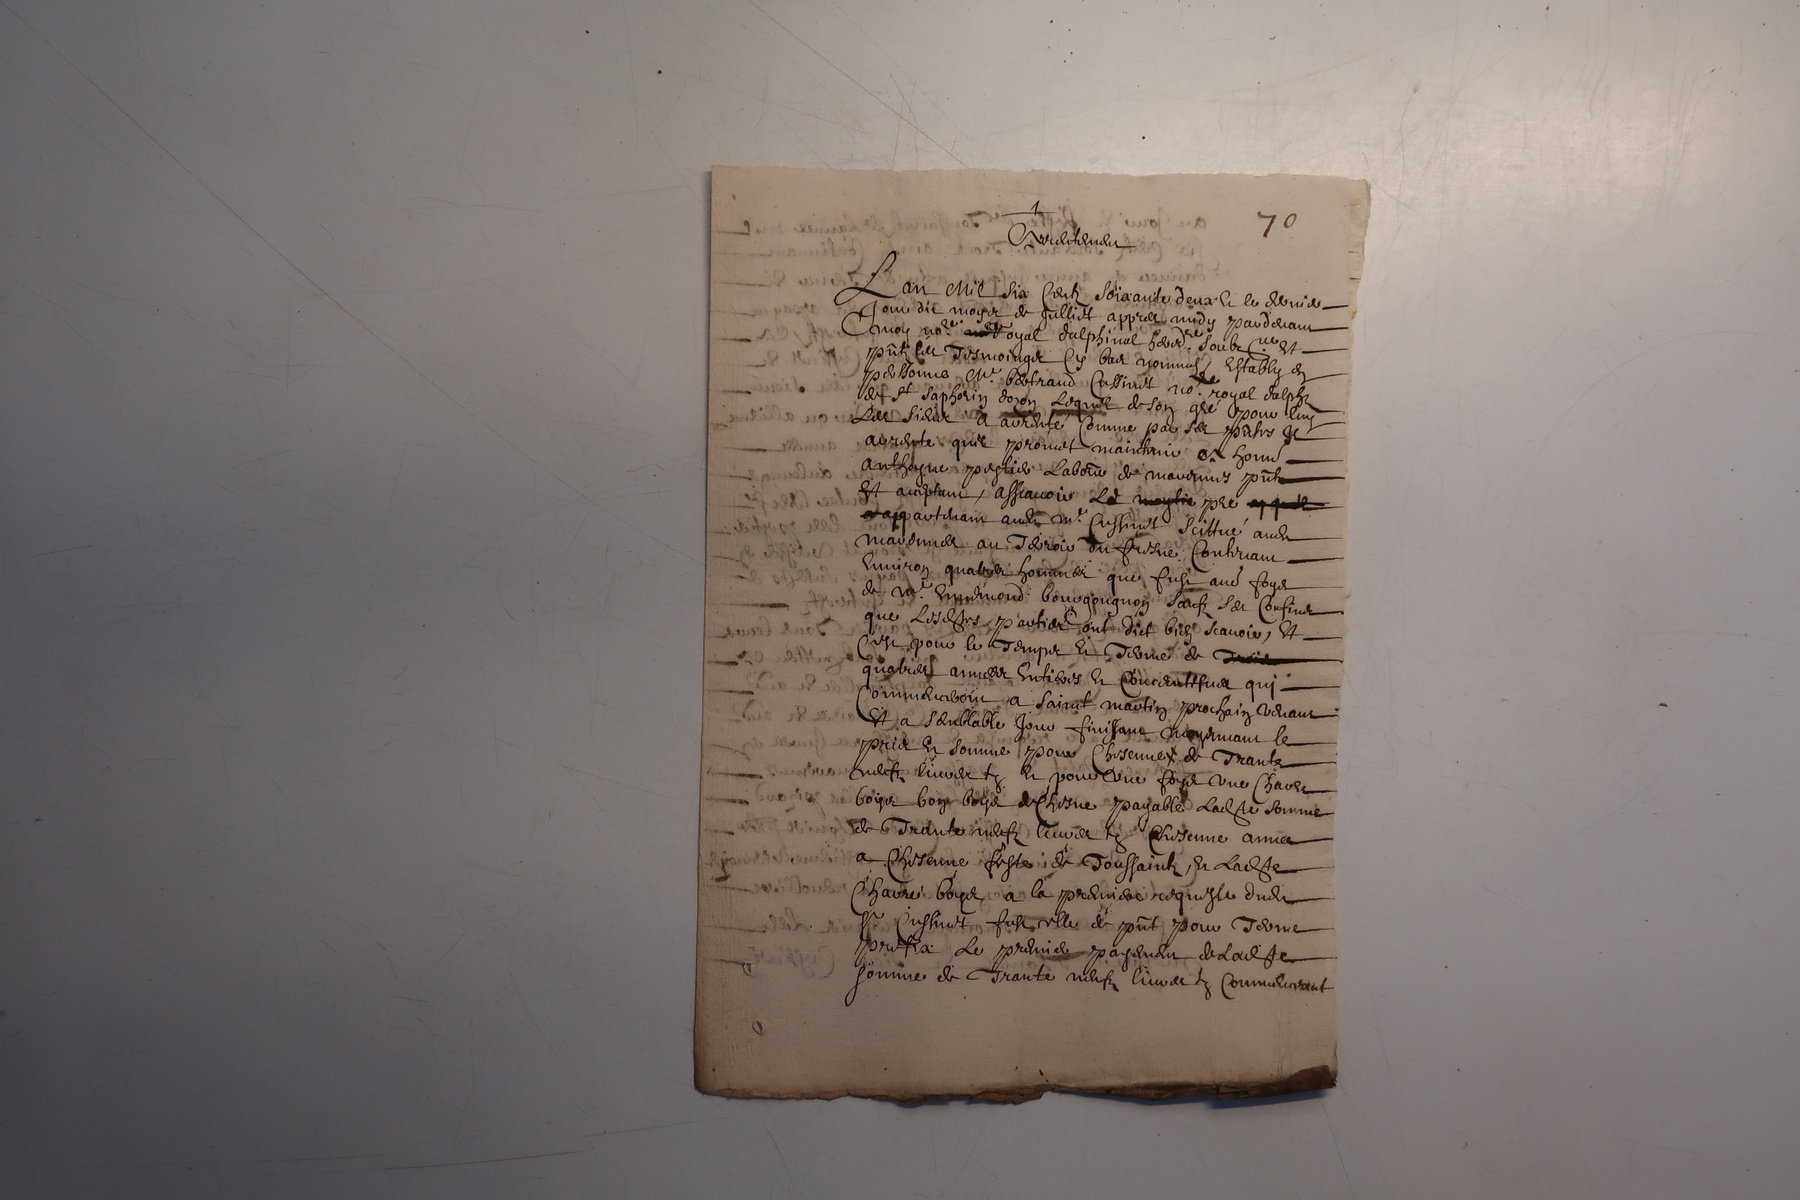 1
70
Arrentement
Lan Mil six centz soixante deux et le dernier
Jour du moys de Juillet appres midy pardevant
moy nore royal dalphinal hered.re soubz.né et
pntz les tesmoingtz cy bas nommés estably en
personne Me bertrand Cussinet nore royal dalphl
de st saphorin dozon Lequel de son gré pour luy
Les siens a arrenté comme par ses pntes il
arrente quil promet maintenir a honne
anthoyne labour de pnt
et acceptant, assavoir Le pré
appartenant aud. Me Cussinet scittué aud.
au terroir du fresne contenant
Environ quatres hommées que fust aud foyz
de Me Ennemond bourgougnon saufz ses confins
que Lesdtes parties ont dict bien scavoir, Et
C'est pour le temps et terme de
quatres années entieres et consecutifves qui
Commenceron a saint martin prochain venant
Et a semblable jour finissant moyenant le
prix et somme pour chescunes de Trante
neufz livres tz et pour une foys une chare
boys bon boys de chesne payable Ladte somme
de Trante neufz livres tz chescune année
a chescune feste de Toussaintz, et Ladte
chare boys a la premiere requeste dudit
Sr Cussinet pour terme
prefix Le premier payement de Ladte
somme de Trante neufz livres tz Commencant